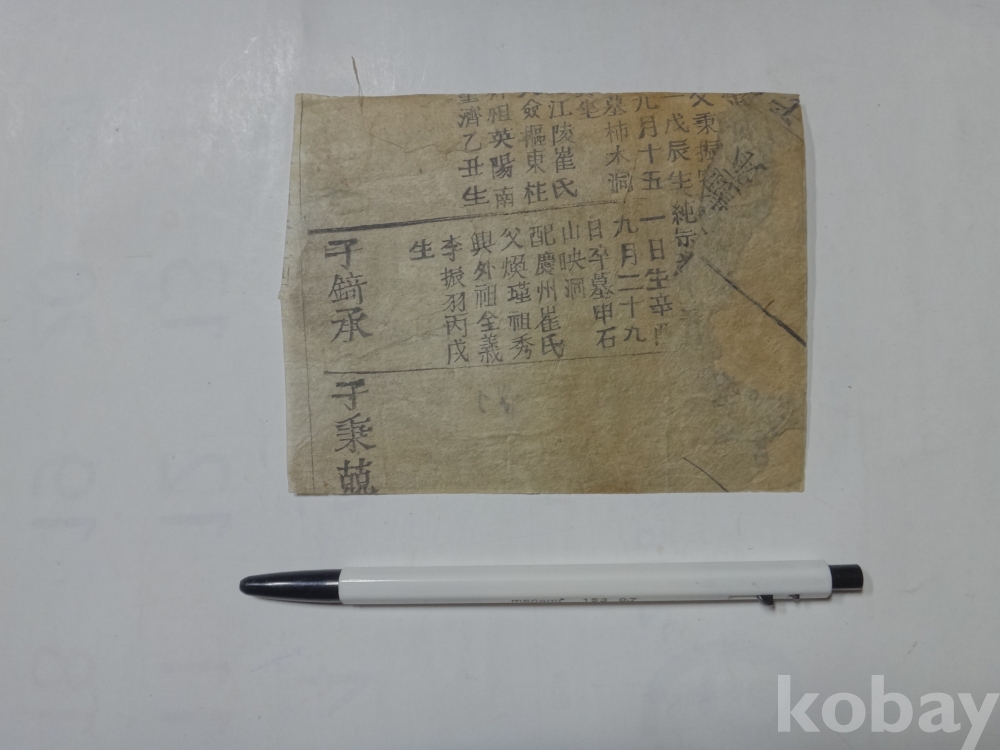 父秉振
戊辰生純宗
九月十五
墓柿木洞
江陵崔氏
僉樞東柱
祖英陽南
濟乙丑生
一日生辛酉
九月二十九
日卒墓申石
山映洞
配慶州崔氏
父煥瑾祖秀
興外祖全義
李振羽丙戌
生
子錡承
子秉兢
kobay